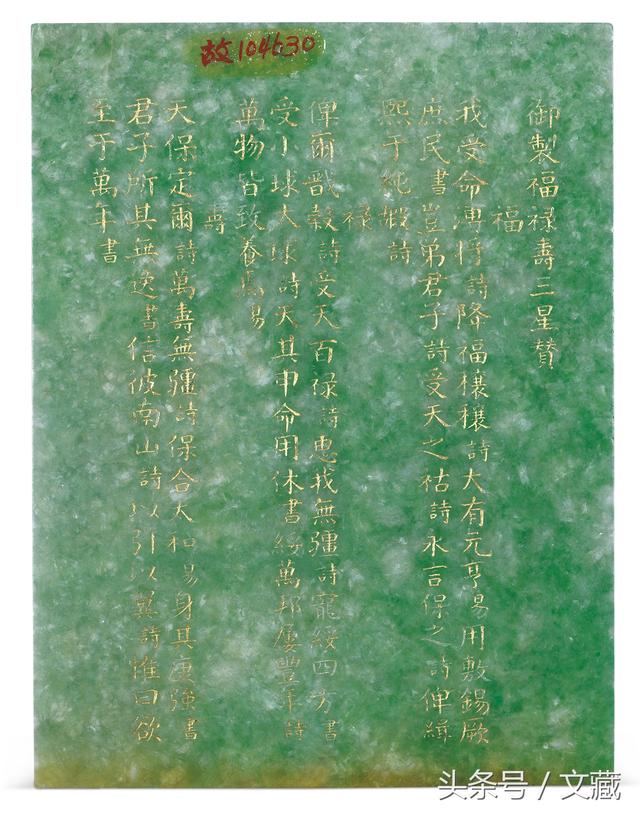 故104630
御製福祿壽三星贊
福
我受命溥將詩降福穰穰詩大有元亨易用敷錫厥
庶民書豈弟君子詩受天之祜詩永言保之詩俾緝
熙于純嘏詩
祿
俾爾戩穀詩受天百祿詩惠我無疆詩寵綏四方書
受小球大球詩天其申命用休書綏萬邦屢豐年詩
萬物皆致養焉易
壽
天保定爾詩萬壽無疆詩保合大和易身其康強書
君子所其無逸書信彼南山詩以引以翼詩惟曰欲
至于萬年書
头条号 / 文藏